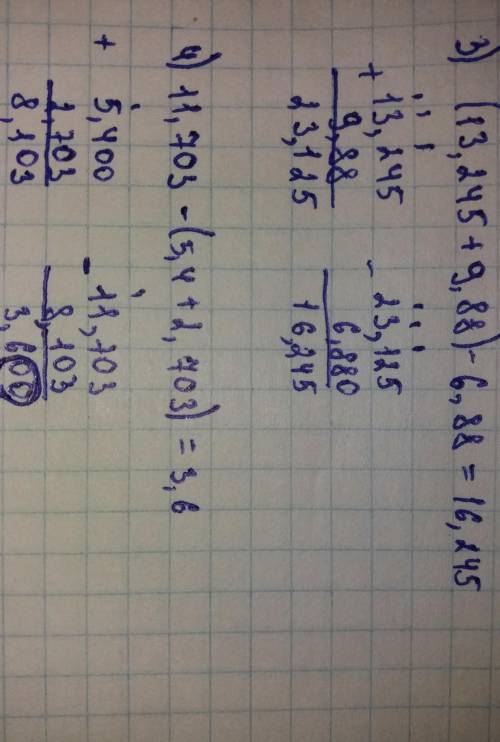 3) (13,245 + 9,88) - 6,88 = 16,245
+ 13,245 - 23,125
9,88 6,880
23,125 16,245
4) 11,703 - (5,4 + 2,703) = 3,6
+ 5,400 - 11,703
2,703 8,103
8,103 3,600